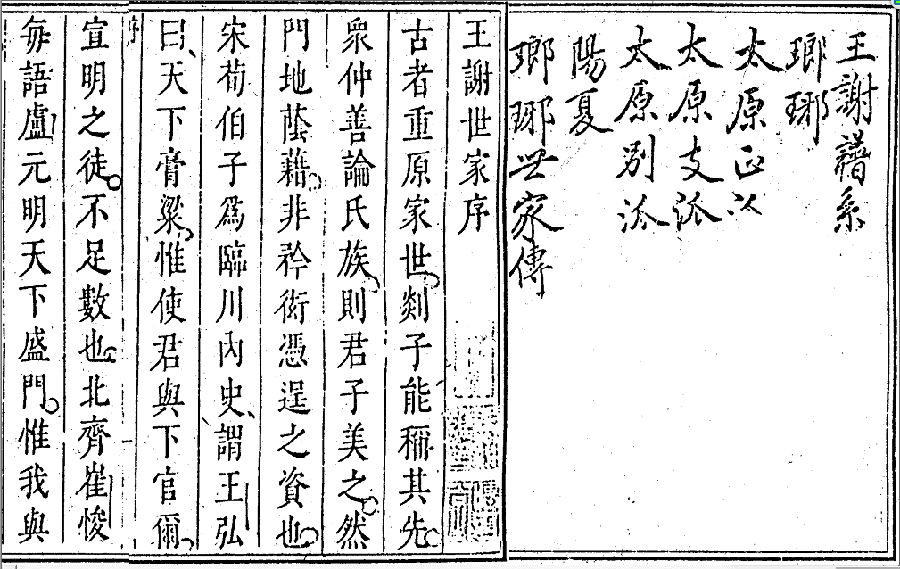 王謝譜系
瑯琊
太原正派
太原支派
太原別派
陽夏
瑯琊世家傳
王謝世家序
古者重原家世剡子能稱其先
衆仲善論氏族則君子美之然
門地蔭藉非矜衒憑逞之資也
宋荀伯子爲臨川內史謂王弘
曰天下膏粱惟使君與下官爾
宣明之徒不足數也北齊崔㥄
每語盧元明天下盛門惟我與